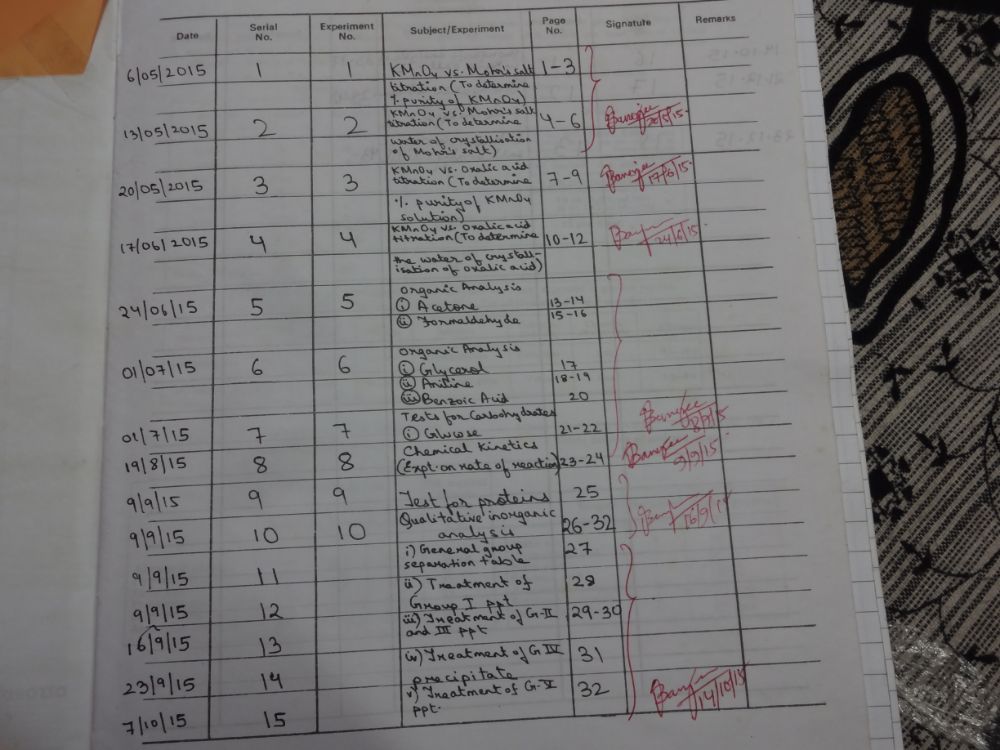 Date Serial No. Experiment No. Subject/Experiment Page No. Signature Remarks
6/05/2015 1 1 KMnO4 vs. Mohr's salt 1-3
titration (To determine
% purity of KMnO4)
13/05/2015 2 2 KMnO4 vs. Mohr's salt 4-6 Banerjee 20/5/15
titration (To determine
water of crystallisation
of Mohr's salt)
20/05/2015 3 3 KMnO4 vs. Oxalic acid 7-9 Banerjee 17/6/15
titration (To determine
% purity of KMnO4
solution)
17/06/2015 4 4 KMnO4 vs. Oxalic acid 10-12 24/6/15
titration (To determine
the water of crystall-
isation of oxalic acid)
Organic Analysis
24/06/15 5 5 i) Acetone 13-14
ii) Formaldehyde 15-16
Organic Analysis
01/07/15 6 6 i) Glycerol 17
ii) Aniline 18-19
iii) Benzoic Acid 20
Tests for Carbohydrates Banerjee
01/7/15 7 7 i) Glucose 21-22
19/8/15 8 8 Chemical Kinetics Banerjee 9/9/15
(Expt. on rate of reaction) 23-24
9/9/15 9 9 Test for proteins 25
9/9/15 10 10 Qualitative inorganic 26-32
analysis
9/9/15 11 i) General group 27
separation table
9/9/15 12 ii) Treatment of 28
Group I ppt
16/9/15 13 iii) Treatment of G-II 29-30
and III ppt
23/9/15 14 iv) Treatment of G IV 31
precipitate
7/10/15 15 v) Treatment of G-V 32 14/10/15
ppt.